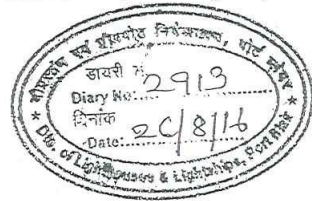 दीपस्तंभ एवं दीपपोत निदेशालय, पोर्ट ब्लेयर
डायरी नं
Diary No:.....2913
दिनांक
Date:.....26/8/16
* Dte. of Lighthouses & Lightships, Port Blair *